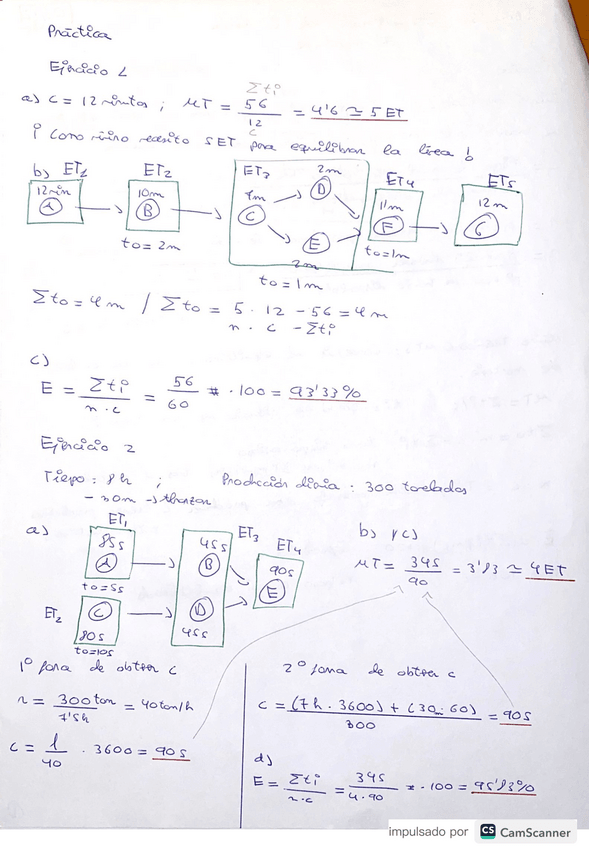 Práctica
Ejercicio 1
a) C = 12 minutos ; MT = Σti / C = 56 / 12 = 4'6 ≃ 5 ET
¡ Como mínimo necesito 5ET para equilibrar la línea !
b) ET1 ET2 ET3 ET4 ET5
12min A → 10m B → C 2m D 2m E → 11m F → 12m G
to = 2m to = 1m to = 1m
Σto = 4m / Σto = 5 · 12 - 56 = 4m
n · c - Σti
c)
E = Σti / n·c = 56 / 60 · 100 = 93'33%
Ejercicio 2
Tiempo : 8h ; Producción diaria : 300 toneladas
- 30m →
a) ET1 ET2 ET3 ET4
85s A → 45s B → 90s E
to = 5s
C → D
80s 45s
to = 10s
b) y c)
MT = 345 / 90 = 3'83 ≃ 4ET
1º forma de obtener c
r = 300 ton / 7'5h = 40 ton/h
c = 1 / 40 · 3600 = 90s
2º forma de obtener c
C = (7h · 3600) + (30 · 60) / 300 = 90s
d)
E = Σti / n·c = 345 / 4·90 · 100 = 95'83%
impulsado por CS CamScanner